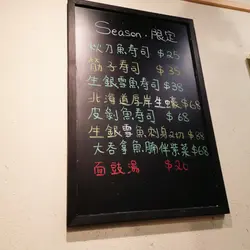 Season・限定
秋刀魚寿司 $25
筋子寿司 $35
生銀雪魚寿司 $38
北海道厚岸生蠔 $68
皮剝魚寿司 $68
生銀雪魚刺身2切 $38
大吞拿魚腩伴紫菜 $68
面豉湯 $20